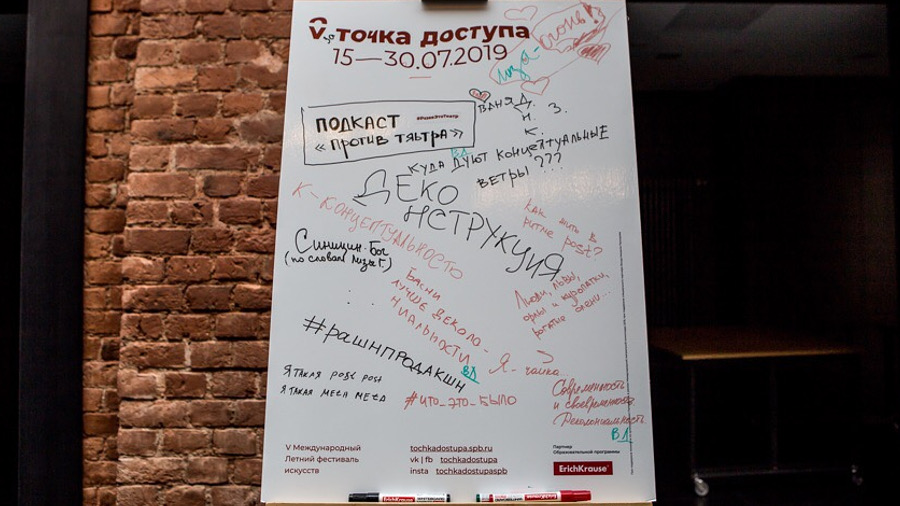 V точка доступа
15—30.07.2019
огонь!
Лиза-
ВАНЯ Д.
Н. З.
К.
ПОДКАСТ
« ПРОТИВ ТЯЬТРА »
ВЛ
КУДА ДУЮТ КОНЦЕПТУАЛЬНЫЕ
ВЕТРЫ ???
ДЕКО
НСТРУКЦИЯ
К-КОНЦЕПТУАЛЬНОСТЬЮ
КАК ЖИТЬ В
РИТМЕ post?
Синицин-Бог
(по словам Лизы Г.)
Басни
ЛУЧШЕ ДЕКОЛО-
НИАЛЬНОСТИ
ВЛ
Люди, львы,
орлы и куропатки,
рогатые олени...
Я - чайка...
#РАШНПРОДАКШН
Я ТАКАЯ POST POST
Я ТАКАЯ МЕТА МЕТА
#ЧТО_ЭТО_БЫЛО
Современность
и своевременность
ВЛ
V Международный
Летний фестиваль
искусств
tochkadostupa.spb.ru
vk | fb tochkadostupa
insta tochkadostupaspb
Партнер
Образовательной программы
ErichKrause
ErichKrause